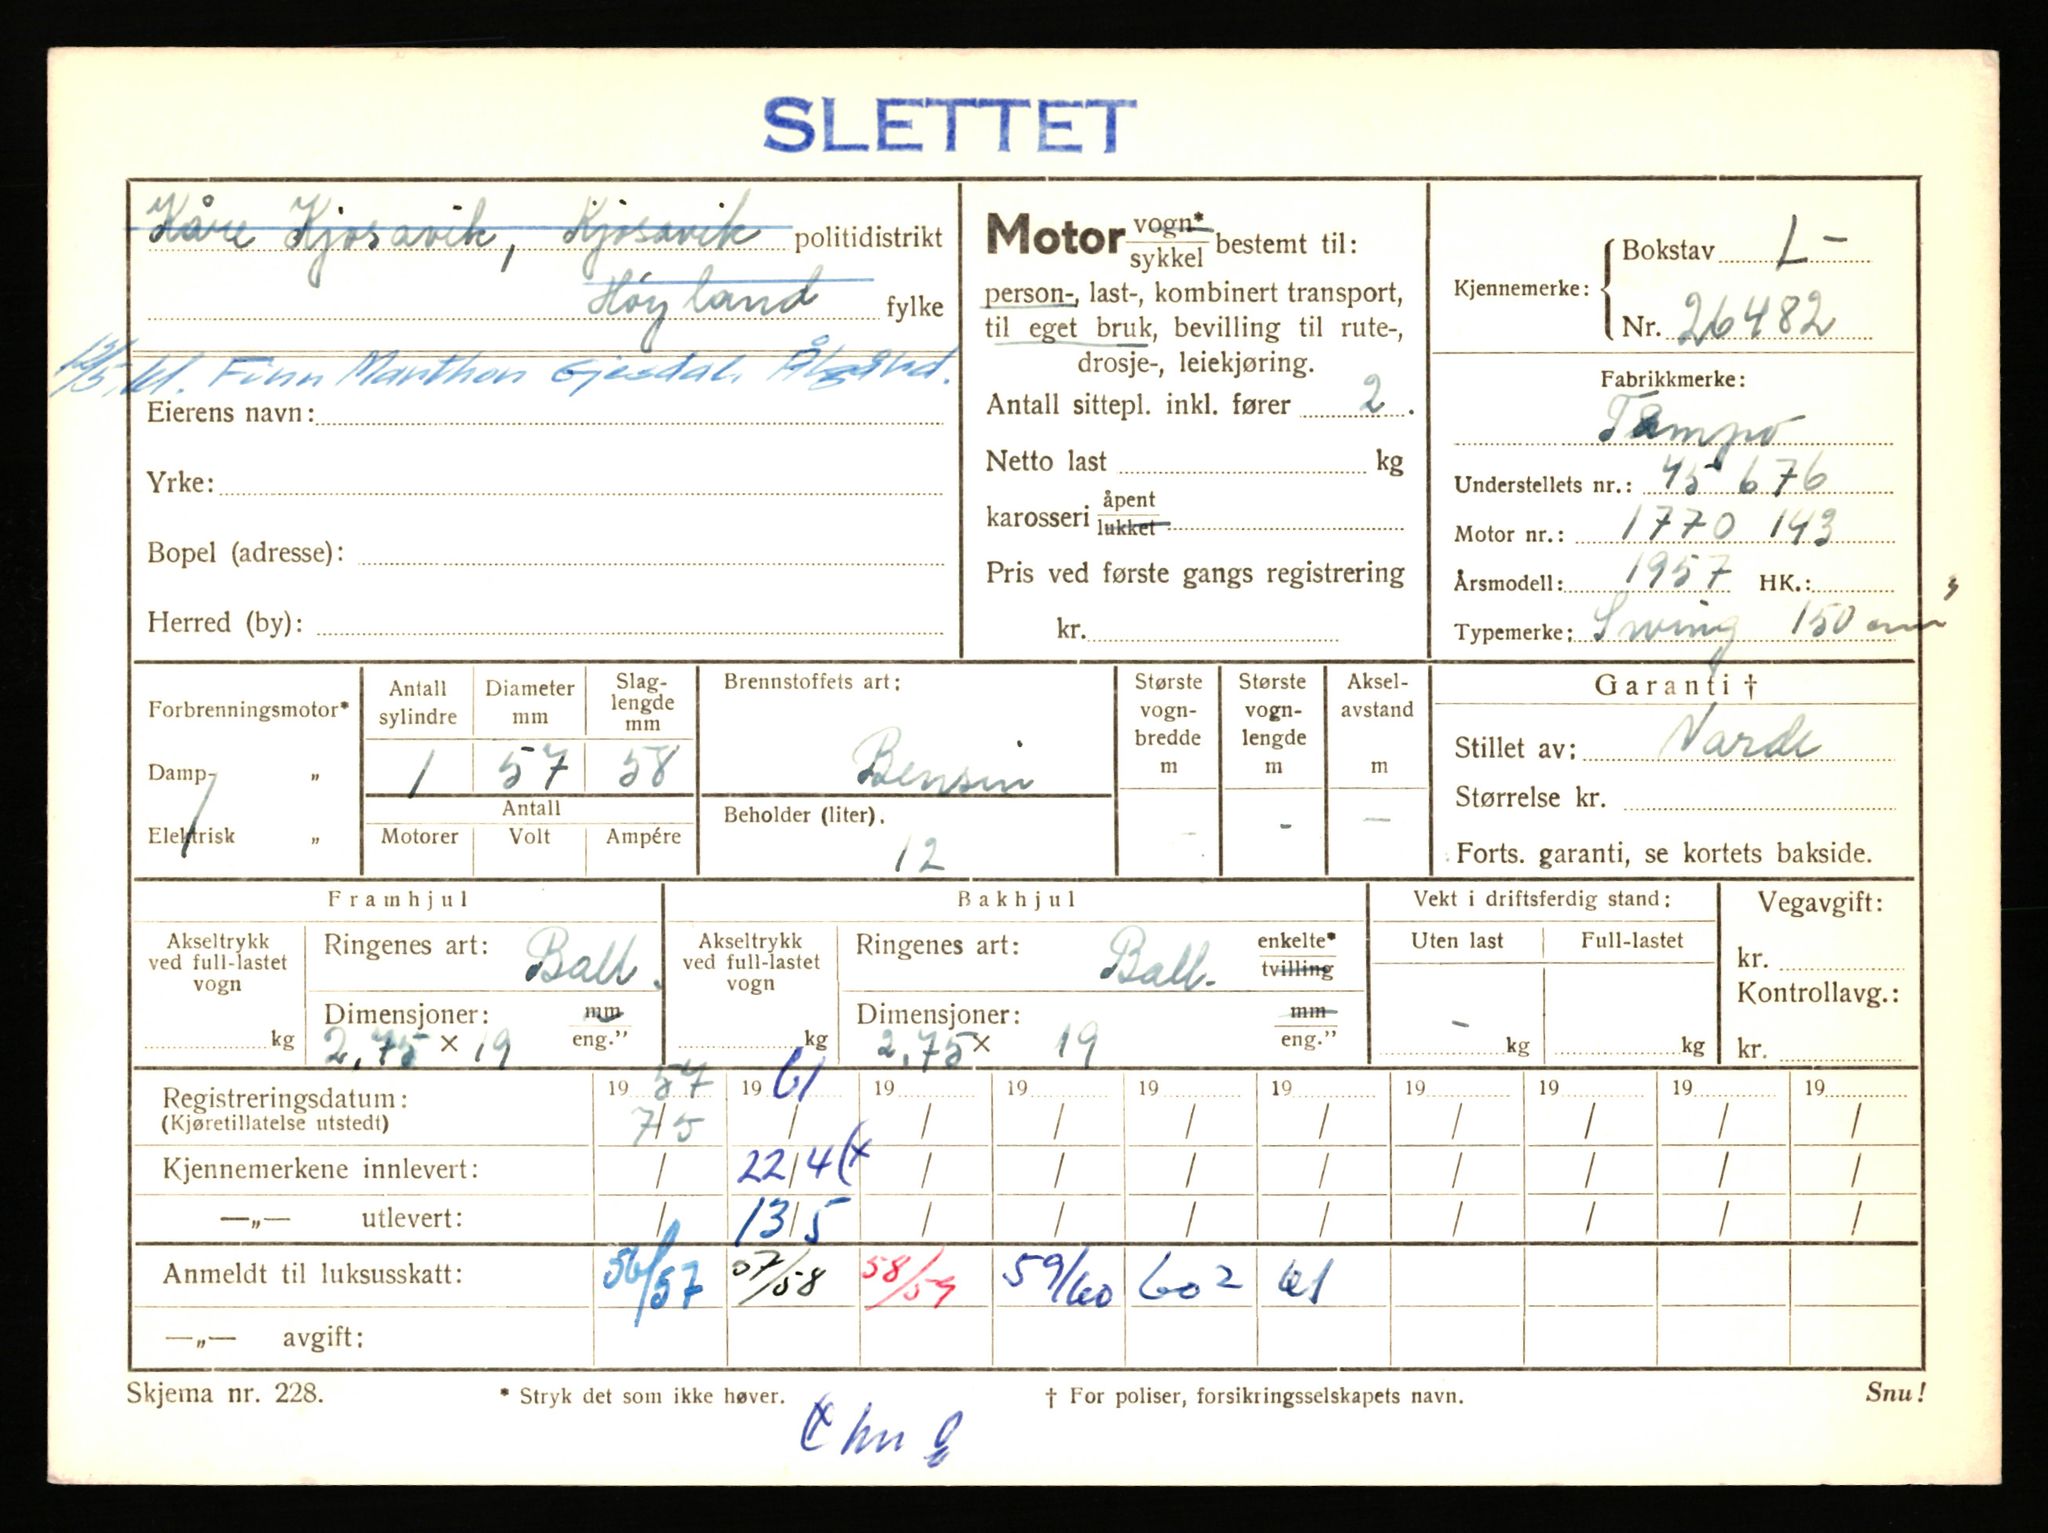 SLETTET
Kåre Kjosavik, Kjosavik politidistrikt
Høyland fylke
Finn Manthon Gjesdal. Ålgård.
Eierens navn:
Yrke:
Bopel (adresse):
Herred (by):
Motor vogn* / sykkel bestemt til:
person-, last-, kombinert transport,
til eget bruk, bevilling til rute-,
drosje-, leiekjøring.
Antall sittepl. inkl. fører 2.
Netto last kg
karosseri åpent / lukket
Pris ved første gangs registrering
kr.
Kjennemerke: Bokstav L-
Nr. 26482
Fabrikkmerke:
Tempo
Understellets nr.: 45 676
Motor nr.: 1770 143
Årsmodell: 1957 HK.:
Typemerke: Swing 150 cm³
Forbrenningsmotor*
Damp- „
Elektrisk „
Antall sylindre Diameter mm Slag-lengde mm
1 57 58
Antall
Motorer Volt Ampére
Brennstoffets art:
Bensin
Beholder (liter).
12
Største vogn-bredde m
-
Største vogn-lengde m
-
Aksel-avstand m
-
Garanti †
Stillet av: Varde
Størrelse kr.
Forts. garanti, se kortets bakside.
Framhjul
Akseltrykk ved full-lastet vogn
kg
Ringenes art: Ball.
Dimensjoner: mm / eng."
2,75 × 19
Bakhjul
Akseltrykk ved full-lastet vogn
kg
Ringenes art: Ball. enkelte* / tvilling
Dimensjoner: mm / eng."
2,75 × 19
Vekt i driftsferdig stand:
Uten last Full-lastet
- kg kg
Vegavgift:
kr.
Kontrollavg.:
kr.
Registreringsdatum: 19 57 19 61 19 19 19 19 19 19 19 19
(Kjøretillatelse utstedt) 7/5 / / / / / / / / /
Kjennemerkene innlevert: / 22/4 (x / / / / / / / /
—„— utlevert: / 13/5 / / / / / / / /
Anmeldt til luksusskatt: 56/57 57/58 58/59 59/60 60 2 61
—„— avgift:
Skjema nr. 228. * Stryk det som ikke høver. † For poliser, forsikringsselskapets navn. Snu!